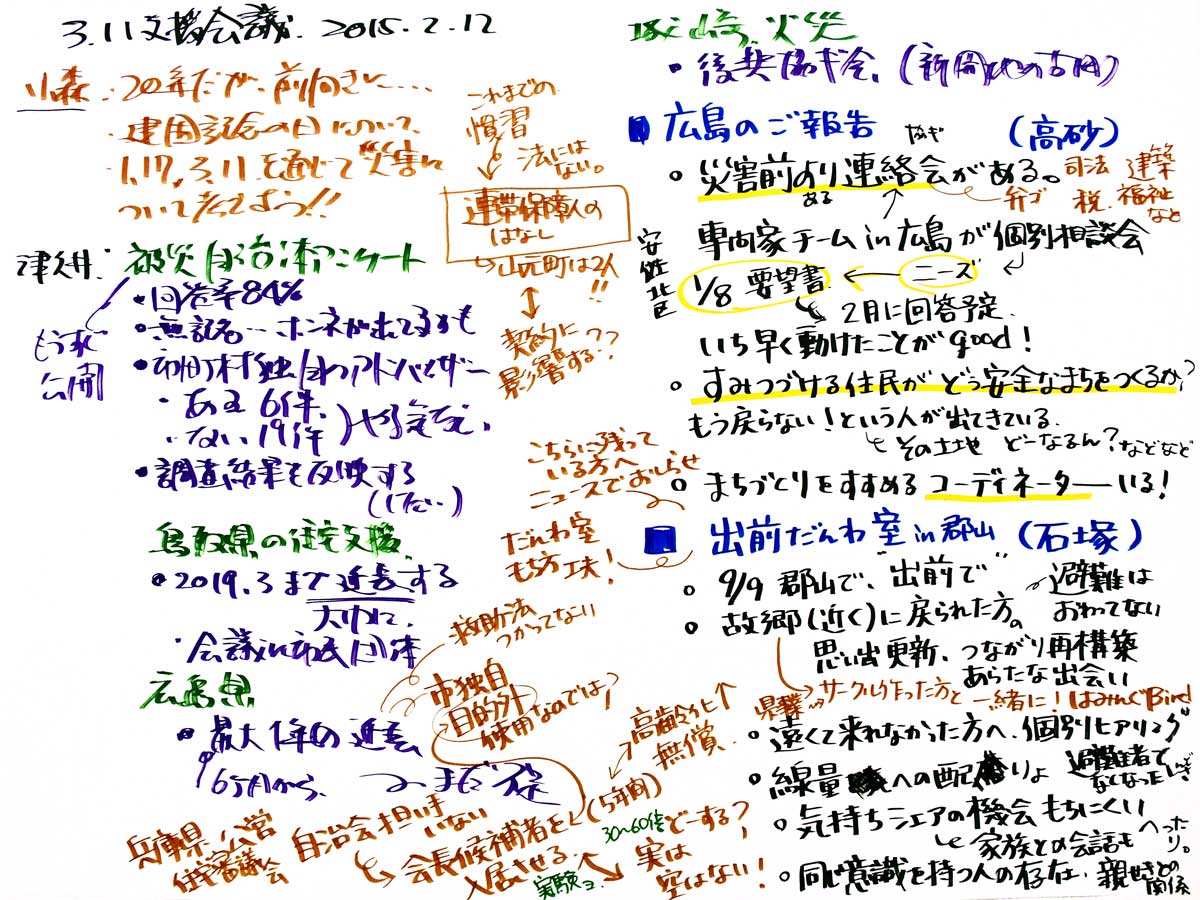 3.11支援会議. 2015.2.12
小森: 20年だが、前向きに....
・建国記念の日について、
・1.17, 3.11を通じて災害に
ついて考えてほう!!
これまでの
慣習
法には
ない。
連帯保障人の
はなし
山元町は2人
!!
契約に
影響する??
津久井: 被災自治体アンケート
もうすぐ
公開
・回答率84%
・無記名… ホンネが出てるかも
・市町村独自のアドバイザー
・ある 6件、
・ない 19件
・調査結果を反映する
鳥取県の住宅支援、
・2019.3まで延長する
大巾に、
・会議in市民団体
広島県
・最大1年の延長
6ヶ月から、
救助法
つかってない
市独自
目的外
使用なのでは?
高齢化↑
無償
兵庫県公営
住宅審議会
自治会担い手
いない
会長候補者を
入居させる
(5年間)
30~60倍
どーする?
実験コ
実は
空はない!
火災
・後 (新聞
広島のご報告 (高砂)
・災害前より連絡会がある。
ある
弁ゴ 司法 建築
税、福祉
など
安佐北区
専門家チームin広島が個別相談会
ニーズ
1/8 要望書
2月に回答予定.
いち早く動けたことがgood!
・すみつづける住民がどう安全なまちをつくるか?
もう戻らない!という人が出てきている.
その土地 どーなるん?などなど
・まちづくりをすすめるコーディネーターいる!
こちらに残って
いる方へ
ニュースでおしらせ
だんわ室
もち方工夫!
出前だんわ室in郡山 (石塚)
・9/9 郡山で、"出前で"
避難は
おわってない
・故郷(近く)に戻られた方。
思い出更新、つながり再構築
あらたな出会い
県業 サークル作った方と一緒に!はみんぐBird
・遠くて来れなかった方へ、個別ヒアリング
・線量への配慮りょ
避難者で
なくなった
・気持ちシェアの機会もちにくい
家族との会話も
へった
り。
・同じ意識を持つ人の存在、親せきとの
関係